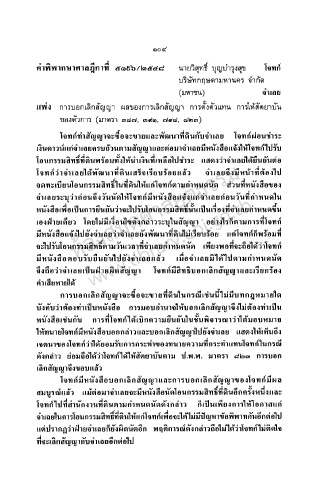 ๑๐๔
คำพิพากษาศาลฎีกาที่ ๕๑๕๖/๒๕๔๘ นายวิสุทธิ์ บุญบำรุงสุข โจทก์
บริษัทกฤษดามหานคร จำกัด
(มหาชน) จำเลย
แพ่ง การบอกเลิกสัญญา ผลของการเลิกสัญญา การตั้งตัวแทน การให้สัตยาบัน
ของตัวการ (มาตรา ๓๘๗, ๓๙๑, ๗๙๘, ๘๒๓)
โจทก์ทำสัญญาจะซื้อจะขายและพัฒนาที่ดินกับจำเลย โจทก์ผ่อนชำระ
เงินดาวน์แก่จำเลยครบถ้วนตามสัญญาและต่อมาจำเลยมีหนังสือแจ้งให้โจทก์ไปรับ
โอนกรรมสิทธิ์ที่ดินพร้อมทั้งให้นำเงินที่เหลือไปชำระ แสดงว่าจำเลยได้ยืนยันต่อ
โจทก์ว่าจำเลยได้พัฒนาที่ดินเสร็จเรียบร้อยแล้ว จำเลยจึงมีหน้าที่ต้องไป
จดทะเบียนโอนกรรมสิทธิ์ในที่ดินให้แก่โจทก์ตามกำหนดนัด ส่วนที่หนังสือของ
จำเลยระบุว่าก่อนถึงวันนัดให้โจทก์มีหนังสือแจ้งแก่จำเลยก่อนวันที่กำหนดใน
หนังสือเพื่อเป็นการยืนยันว่าจะไปรับโอนกรรมสิทธิ์นั้นเป็นเรื่องที่จำเลยกำหนดขึ้น
เองฝ่ายเดียว โดยไม่มีเงื่อนไขดังกล่าวระบุในสัญญา อย่างไรก็ตามการที่โจทก์
มีหนังสือแจ้งไปยังจำเลยว่าจำเลยยังพัฒนาที่ดินไม่เรียบร้อย แต่โจทก์ก็พร้อมที่
จะไปรับโอนกรรมสิทธิ์ตามวันเวลาที่จำเลยกำหนด เพียงพอที่จะถือได้ว่าโจทก์
มีหนังสือตอบรับยืนยันไปยังจำเลยแล้ว เมื่อจำเลยมิได้ไปตามกำหนดนัด
จึงถือว่าจำเลยเป็นฝ่ายผิดสัญญา โจทก์มีสิทธิบอกเลิกสัญญาและเรียกร้อง
ค่าเสียหายได้
การบอกเลิกสัญญาจะซื้อจะขายที่ดินในกรณีเช่นนี้ไม่มีบทกฎหมายใด
บังคับว่าต้องทำเป็นหนังสือ การมอบอำนาจให้บอกเลิกสัญญาจึงไม่ต้องทำเป็น
หนังสือเช่นกัน การที่โจทก์ได้เบิกความยืนยันในชั้นพิจารณาว่าได้มอบหมาย
ให้ทนายโจทก์มีหนังสือบอกกล่าวและบอกเลิกสัญญาไปยังจำเลย แสดงให้เห็นถึง
เจตนาของโจทก์ว่าได้ยอมรับการกระทำของทนายความที่กระทำแทนโจทก์ในกรณี
ดังกล่าว ย่อมถือได้ว่าโจทก์ได้ให้สัตยาบันตาม ป.พ.พ. มาตรา ๘๒๓ การบอก
เลิกสัญญาจึงชอบแล้ว
โจทก์มีหนังสือบอกเลิกสัญญาและการบอกเลิกสัญญาของโจทก์มีผล
สมบูรณ์แล้ว แม้ต่อมาจำเลยจะมีหนังสือนัดโอนกรรมสิทธิ์ที่ดินอีกครั้งหนึ่งและ
โจทก์ไปที่สำนักงานที่ดินตามกำหนดนัดดังกล่าว ก็เป็นเพียงการให้โอกาสแก่
จำเลยในการโอนกรรมสิทธิ์ที่ดินให้แก่โจทก์เพื่อจะได้ไม่มีปัญหาข้อพิพาทกันอีกต่อไป
แต่ปรากฏว่าฝ่ายจำเลยก็ยังผิดนัดอีก พฤติการณ์ดังกล่าวถือไม่ได้ว่าโจทก์ไม่ติดใจ
ที่จะเลิกสัญญากับจำเลยอีกต่อไป